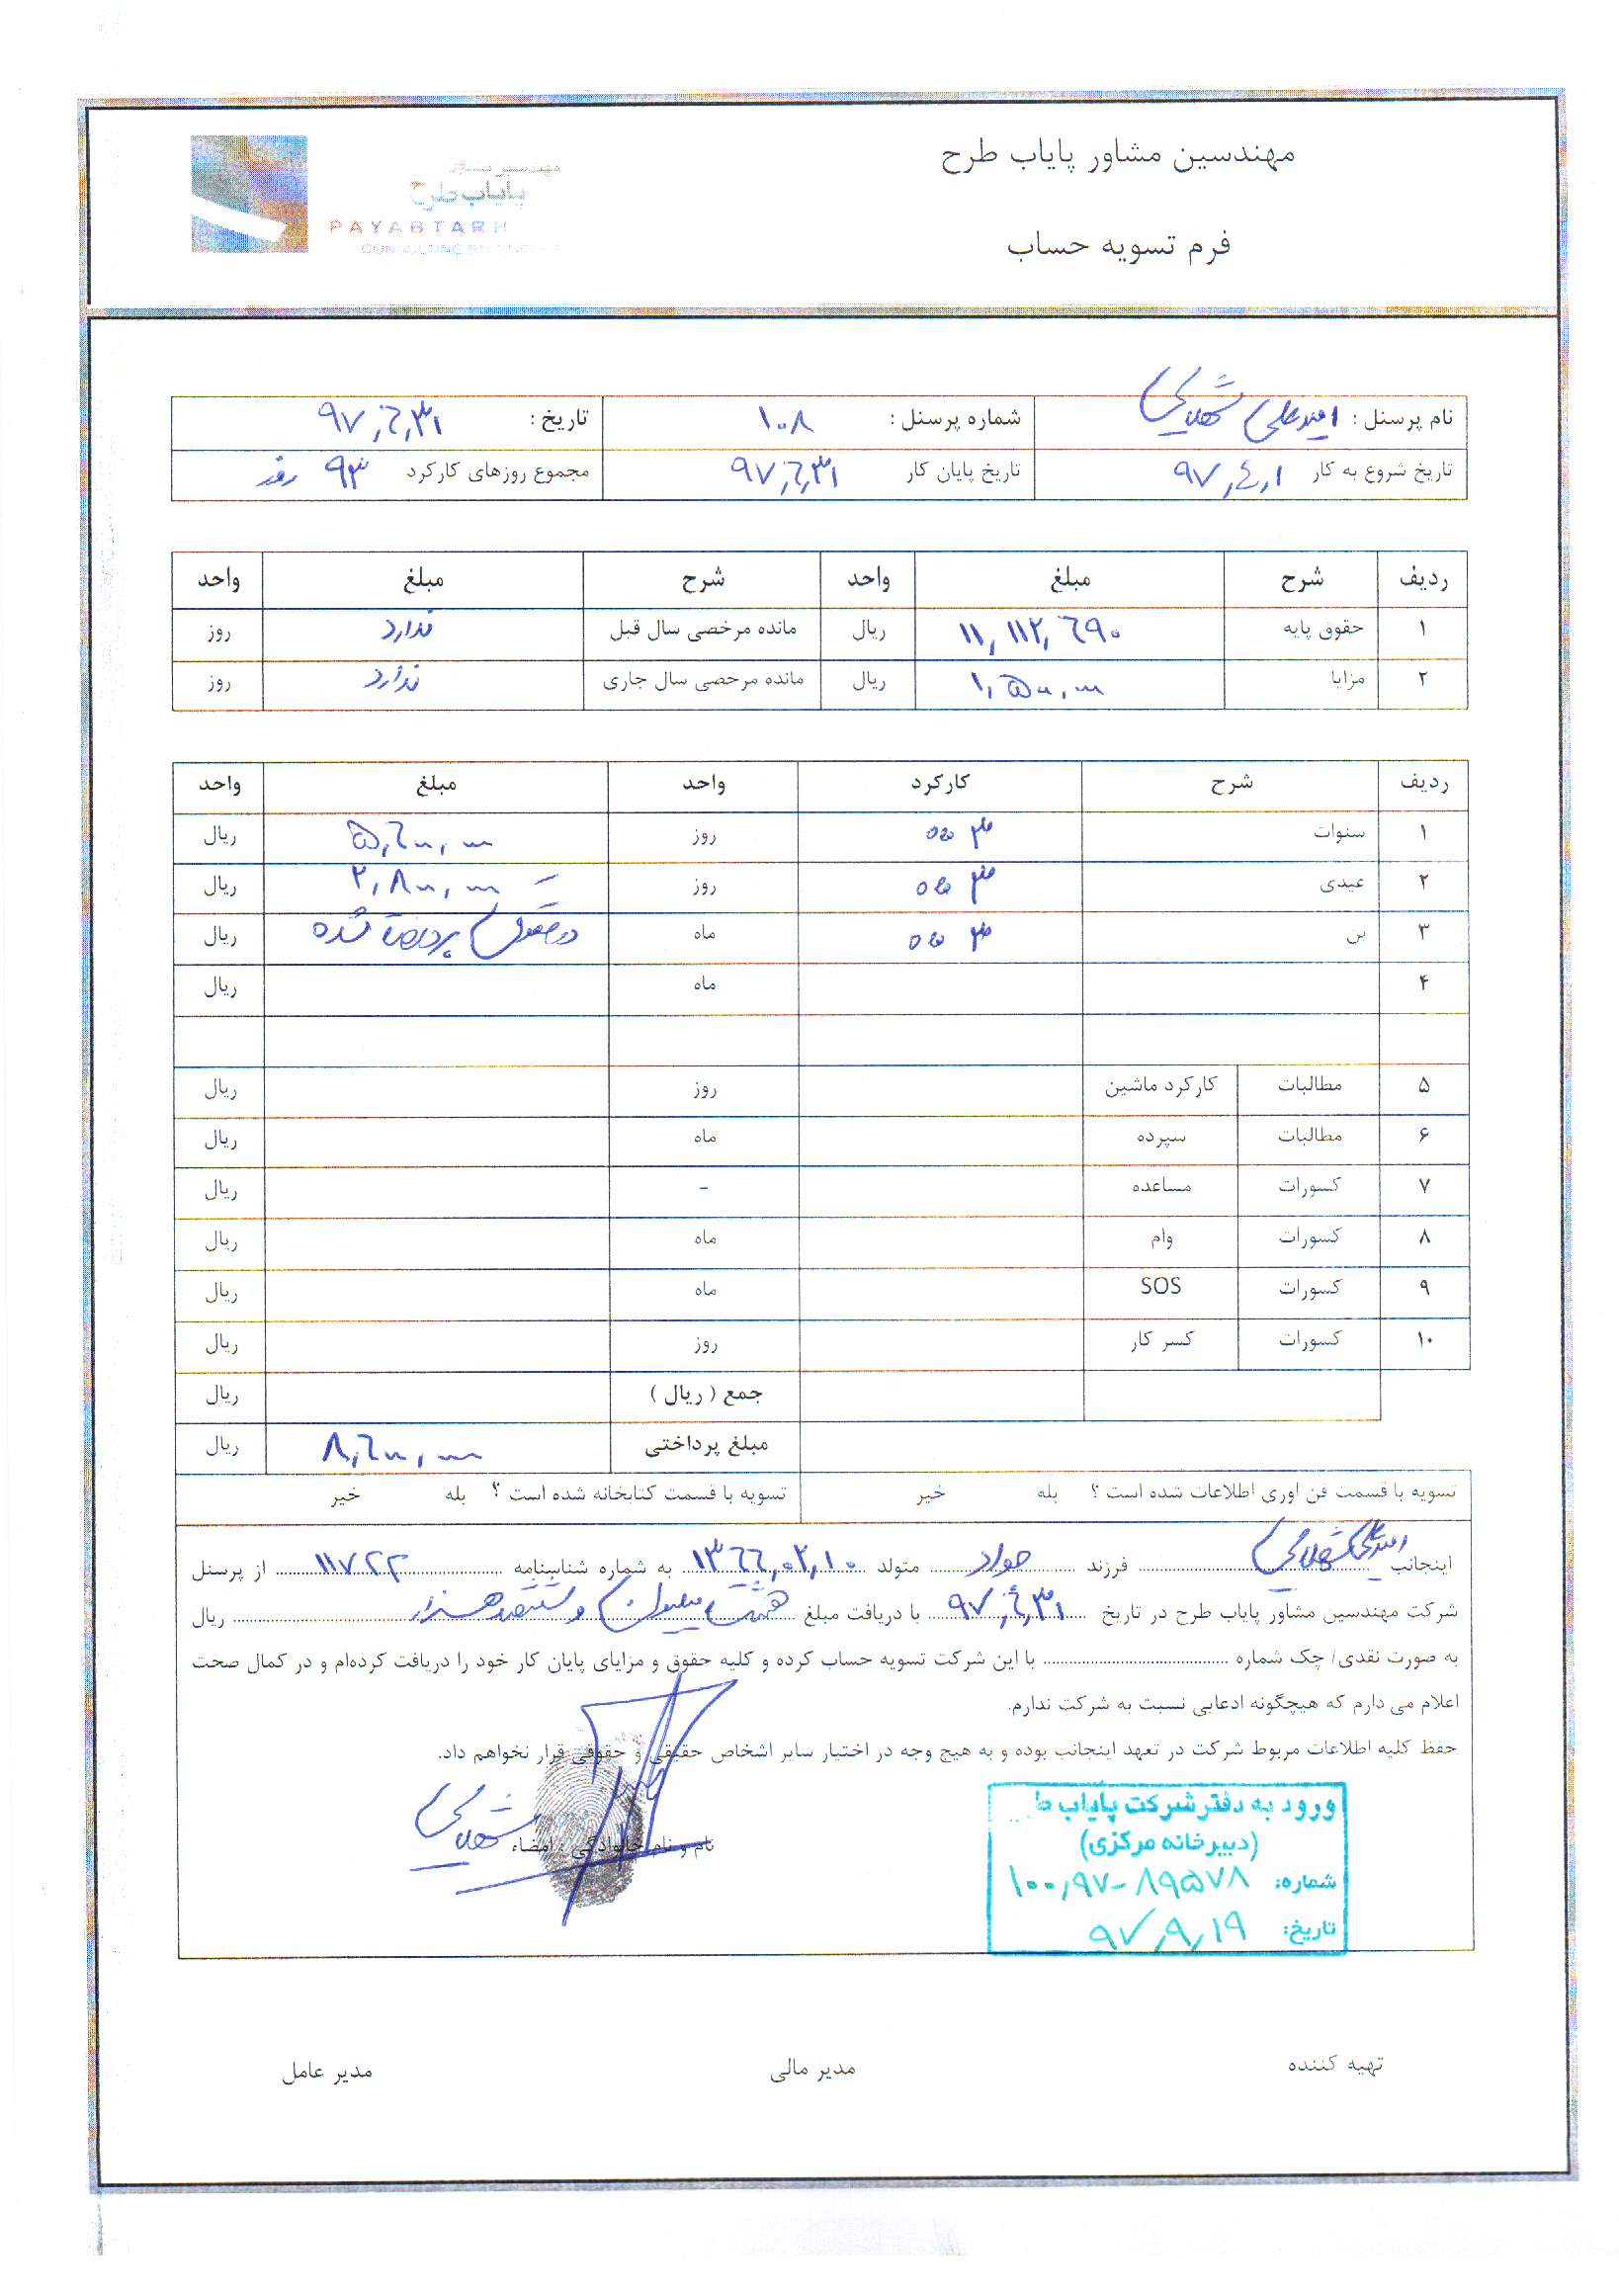 مهندسین مشاور پایاب طرح
فرم تسویه حساب
پایاب طرح
PAYABTARH
CONSULTING ENGINEERS
نام پرسنل : امیدعلی شهلایی شماره پرسنل : ۱۰۸ تاریخ : ۹۷,۶,۳۱
تاریخ شروع به کار ۹۷,۴,۱ تاریخ پایان کار ۹۷,۶,۳۱ مجموع روزهای کارکرد ۹۳ روز
ردیف شرح مبلغ واحد شرح مبلغ واحد
۱ حقوق پایه ۱۱,۱۱۲,۶۹۰ ریال مانده مرخصی سال قبل ندارد روز
۲ مزایا ۱,۵۰۰,۰۰۰ ریال مانده مرخصی سال جاری ندارد روز
ردیف شرح کارکرد واحد مبلغ واحد
۱ سنوات ۳ ماه روز ۵,۶۰۰,۰۰۰ ریال
۲ عیدی ۳ ماه روز ۲,۸۰۰,۰۰۰ ریال
۳ بن ۳ ماه ماه در حقوق پرداخت شده ریال
۴ ماه ریال
۵ مطالبات کارکرد ماشین روز ریال
۶ مطالبات سپرده ماه ریال
۷ کسورات مساعده - ریال
۸ کسورات وام ماه ریال
۹ کسورات SOS ماه ریال
۱۰ کسورات کسر کار روز ریال
جمع ( ریال ) ریال
مبلغ پرداختی ۸,۶۰۰,۰۰۰ ریال
تسویه با قسمت فن آوری اطلاعات شده است ؟ بله خیر تسویه با قسمت کتابخانه شده است ؟ بله خیر
اینجانب امیدعلی شهلایی فرزند جواد متولد ۱۳۶۶,۰۲,۱۰ به شماره شناسنامه ۱۱۷۲۲ از پرسنل
شرکت مهندسین مشاور پایاب طرح در تاریخ ۹۷,۶,۳۱ با دریافت مبلغ هشت میلیون و ششصد هزار ریال
به صورت نقدی/ چک شماره با این شرکت تسویه حساب کرده و کلیه حقوق و مزایای پایان کار خود را دریافت کرده‌ام و در کمال صحت
اعلام می دارم که هیچگونه ادعایی نسبت به شرکت ندارم.
حفظ کلیه اطلاعات مربوط شرکت در تعهد اینجانب بوده و به هیچ وجه در اختیار سایر اشخاص حقیقی و حقوقی قرار نخواهم داد.
نام و نام خانوادگی ، امضاء
شهلایی
ورود به دفتر شرکت پایاب ط
(دبیرخانه مرکزی)
شماره: ۱۰۰,۹۷-۸۹۵۷۸
تاریخ: ۹۷,۹,۱۹
تهیه کننده مدیر مالی مدیر عامل